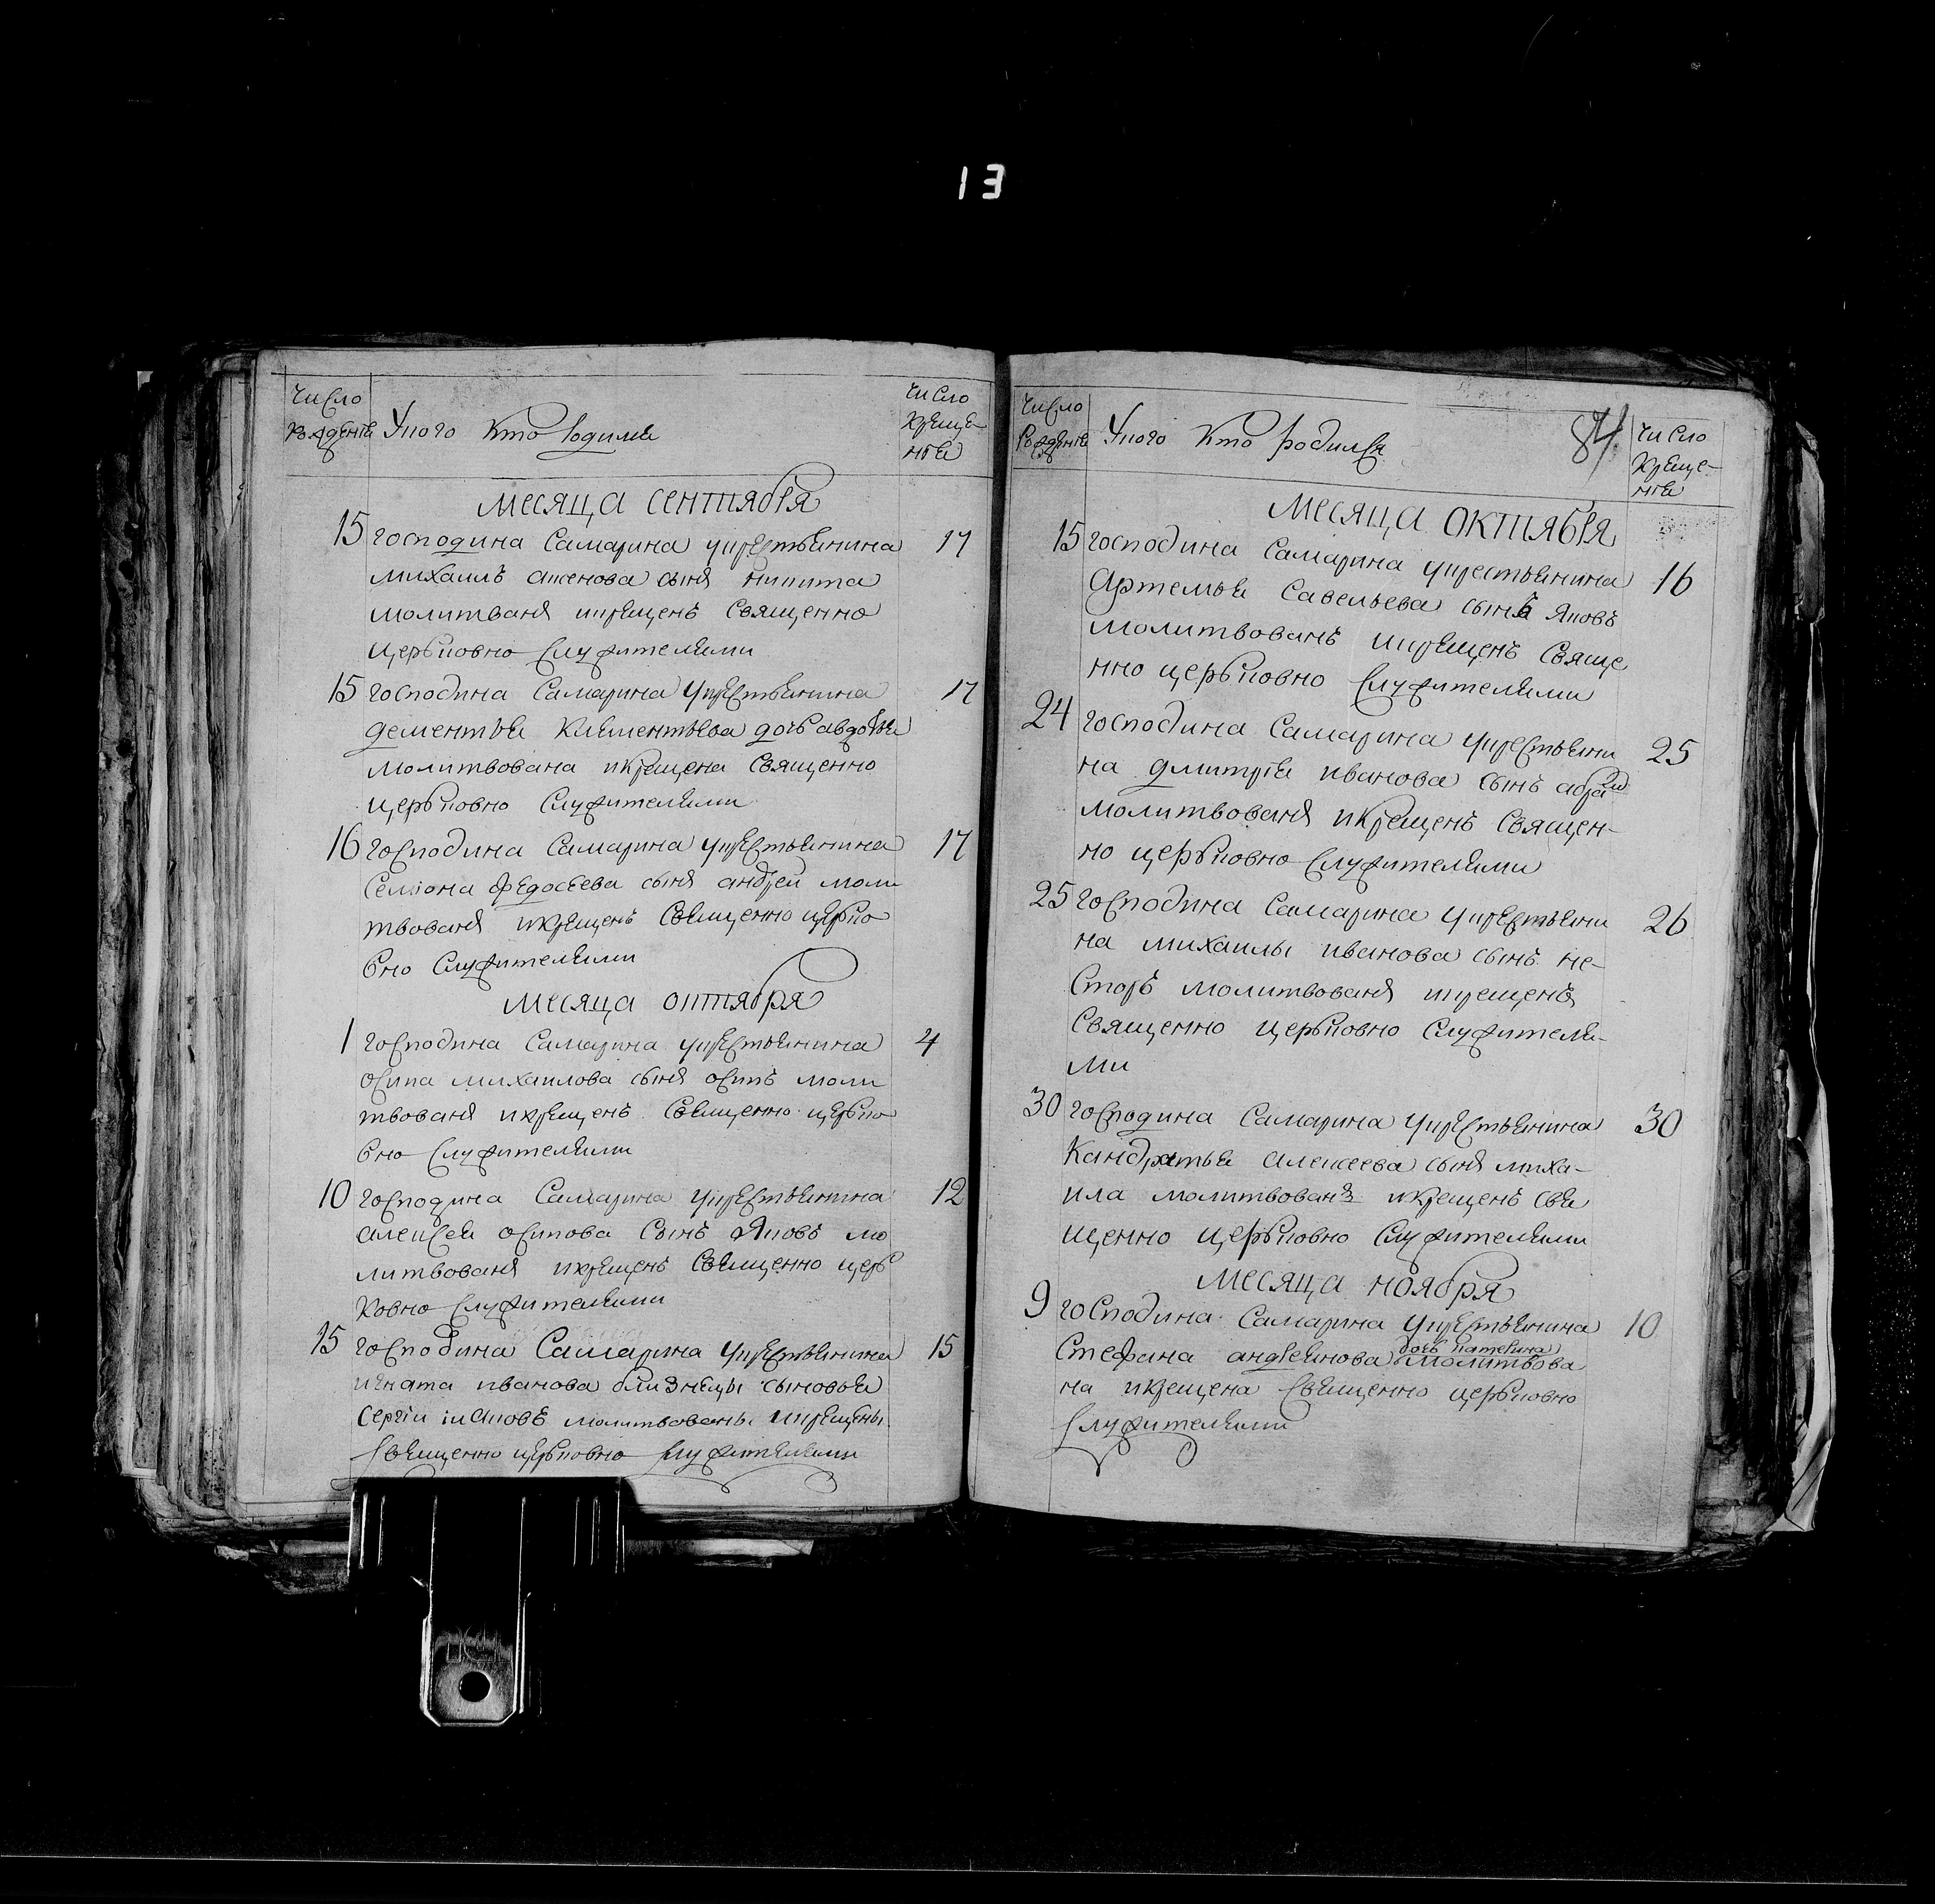 13
Число
рожденiя
У кого кто родился
Число
креще-
нiя
месяца сентября
15 господина Самарина укрестьянина 17
михаилъ аксенова сынъ никита
молитванъ икрещенъ священно
церьковно служителями
15 господина Самарина укрестьянина 17
дементья климентьева дочь авдотья
молитвована икрещена священно
церьковно служителями
16 господина Самарина укрестьянина 17
семiона федосеева сынъ андрей моли
твованъ икрещенъ священно церько
вно служителями
месяца октября
1 господина Самарина укрестьянина 4
осипа михаилова сынъ осипъ моли
твованъ икрещенъ священно церько
вно служителями
10 господина Самарина укрестьянина 12
алексея осипова сынъ яковъ мо
литвованъ икрещенъ священно церь
ковно служителями
15 господина Самарина укрестьянина 15
игната иванова близнецы сыновья
сергiи iиаковъ молитвованы икрещены
священно церьковно служителями
Число
рожденiя
У кого кто родился
84
Число
креще-
нiя
месяца октября
15 господина Самарина укрестьянина 16
артемья савельева сынъ яковъ
молитвованъ икрещенъ свяще
нно церьковно служителями
24 господина Самарина укрестьяни 25
на дмитрiя иванова сынъ абрам
молитвованъ икрещенъ священ-
но церьковно служителями
25 господина Самарина укрестьяни 26
на михаилы иванова сынъ не-
сторъ молитвованъ икрещенъ
священно церьковно служителя-
ми
30 господина Самарина укрестьянина 30
кандратья алексеева сынъ миха-
ила молитвованъ икрещенъ свя
щенно церьковно служителями
месяца ноября
9 господина Самарина укрестьянина 10
стефана андреянова дочь катерина молитвова
на икрещена священно церьковно
служителями